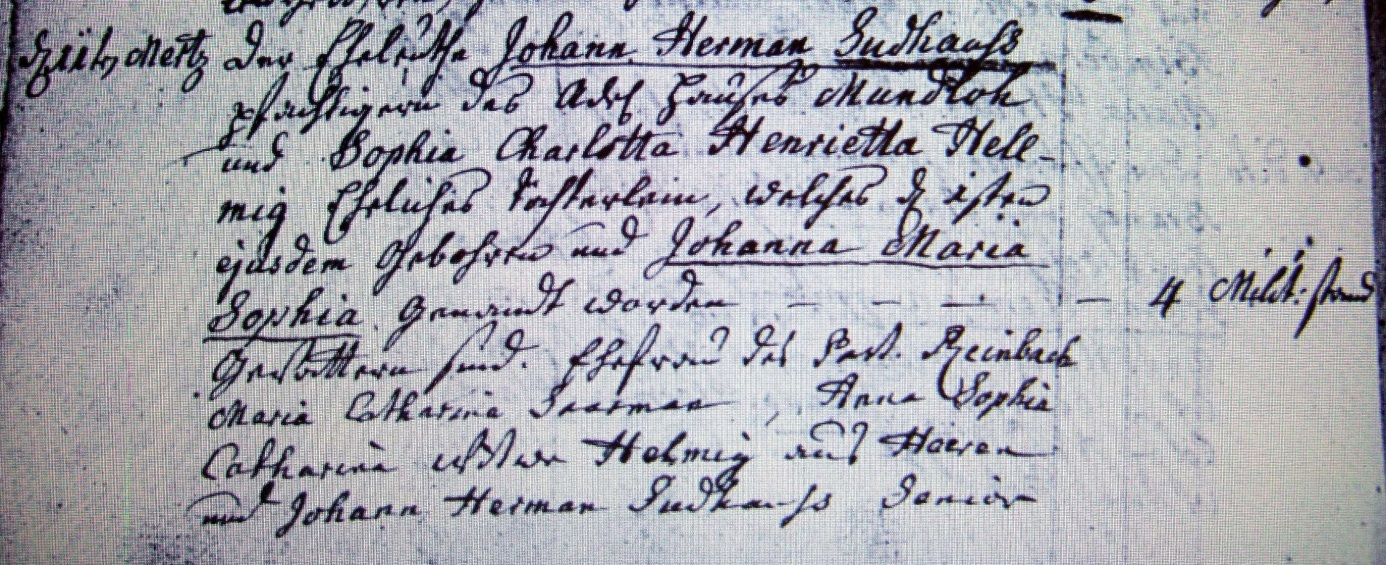 Mertz der Eheleuthe Johann Herman Sudhauss
pfachtigern des Adel Hauses Mundloh
und Sophia Charlotta Henrietta Hell-
mig Eheliches Töchterlein, welches d isten
ejusdem Gebohren und Johanna Maria
Sophia Genandt worden — — — — 4 Milit: stand
Gevattern sind. Ehefrau des Past. Reinbach
Maria Catharina , Anna Sophia
Catharina Wittwe Helmig aus Heeren
und Johann Herman Sudhauss Senior